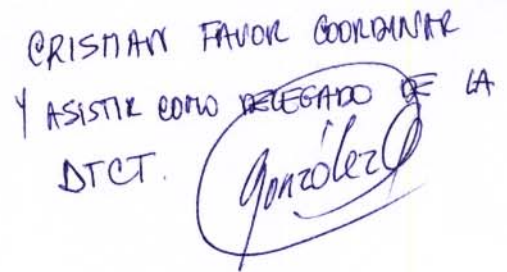 CRISMAN FAVOR COORDINAR
Y ASISTIR COMO DELEGADO DE LA
DTCT.
González